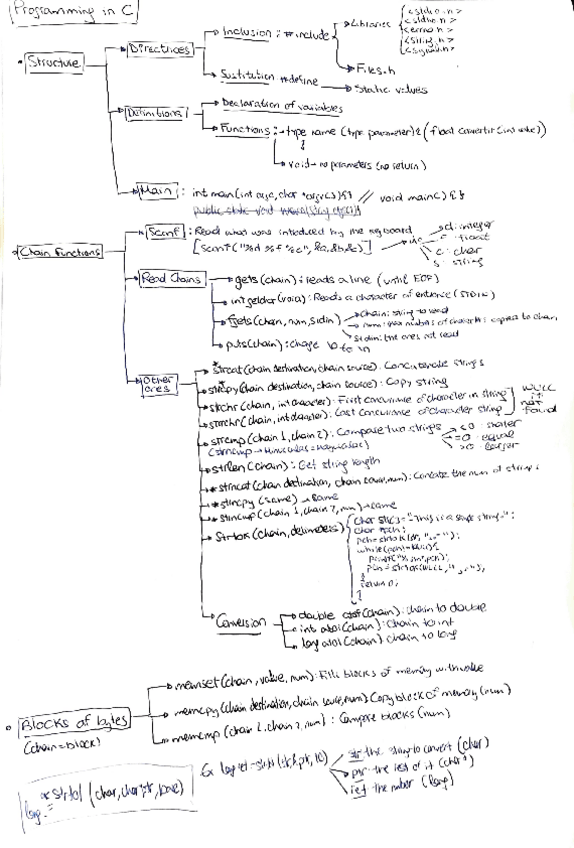 Programming in C
• Structure
Directives
Inclusion : #include
Libraries
<stdio.h>
<errno.h>
<string.h>
<signal.h>
Files.h
Sustitution #define → Static values
Definitions
Declaration of variables
Functions : type name (type parameter)
void → no parameters (no return)
Main : int main(int argc, char *argv[]){} // void main(){}
• Chain Functions
Scanf : Read what was introduced by the keyboard
[scanf("%d %f %c", &a,&b,&c)]
d: integer
f: float
c: char
s: string
Read Chains
gets(chain) : reads a line (until EOF)
int getchar(void) : Reads a character of entrance (STDIN)
fgets(chain, num, stdin)
chain: string to read
num:
stdin: the ones not read
puts(chain) : change \0 to \n
Other ones
* strcat(chain destination, chain source) : Concatenate strings
strcpy(chain destination, chain source) : Copy string
strchr(chain, int character) : First concurrence of character in string
strrchr(chain, int character) : Last concurrence of character string
NULL if not found
strcmp(chain 1, chain 2) : Compare two strings
<0
=0 equal
>0 larger
strlen(chain) : Get string length
* strncat(chain destination, chain source, num) : the num of strings
* strncpy (same) → same
strncmp(chain 1, chain 2, num) → same
Strtok (chain, delimeters)
char str[]="This is a simple string";
char *pch;
while(pch!=NULL){
return 0;
}
Conversion
double atof(chain) : chain to double
int atoi(chain) : Chain to int
long atol(chain) chain to long
• Blocks of bytes
(chain=block)
memset(chain, value, num) : Fills blocks of memory with value
memcpy(chain destination, chain source, num) Copy block of memory (num)
memcmp (chain 1, chain 2, num) : Compare blocks (num)
* strtol (char, char **, base)
long
Ex long ret = strtol(str, & ptr, 10)
str the string to convert (char)
ptr the rest of it (char *)
ret the number (long)